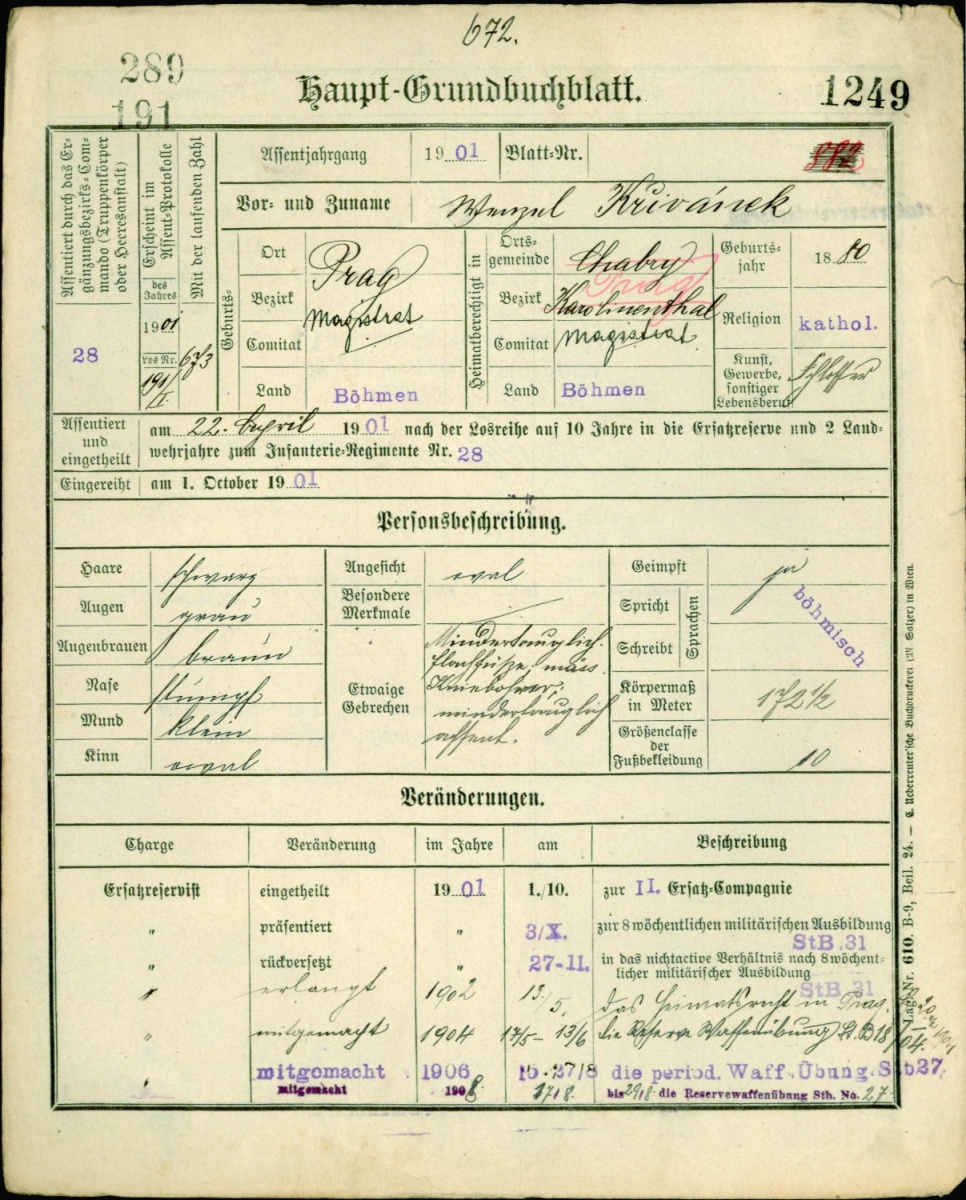 672.
289
191
Haupt-Grundbuchblatt.
1249
Assentiert durch das Ergänzungsbezirks-Commando (Truppenkörper oder Heeresanstalt)
28
Erscheint im Assent-Protokolle
des Jahres
1901
Los Nr.
191/I
Mit der laufenden Zahl
673
Assentjahrgang
1901
Blatt-Nr.
Vor- und Zuname
Wenzel Křivánek
Geburts-
Ort
Prag
Bezirk
Magistrat
Comitat
Land
Böhmen
Heimatberechtigt in
Ortsgemeinde
Chabry
Prag
Bezirk
Karolinenthal
Comitat
Magistrat
Land
Böhmen
Geburtsjahr
1880
Religion
kathol.
Kunst, Gewerbe, sonstiger Lebensberuf
Schlosser
Assentiert und eingetheilt
am 22. April 1901 nach der Losreihe auf 10 Jahre in die Ersatzreserve und 2 Land-
wehrjahre zum Infanterie-Regimente Nr. 28
Eingereiht
am 1. October 1901
Personsbeschreibung.
Haare
schwarz
Augen
grau
Augenbrauen
braun
Nase
stumpf
Mund
klein
Kinn
oval
Angesicht
oval
Besondere Merkmale
Etwaige Gebrechen
Mindertauglich.
Plattfüsse, mäss.
Kniebohrer,
mindertauglich
assent.
Geimpft
ja
Spricht
Schreibt
Sprachen
böhmisch
Körpermaß in Meter
172 ½
Größenclasse der Fußbekleidung
10
Veränderungen.
Charge
Veränderung
im Jahre
am
Beschreibung
Ersatzreservist eingetheilt 1901 1./10. zur II. Ersatz-Compagnie
" präsentiert " 3/X. zur 8 wöchentlichen militärischen Ausbildung
StB.31
" rückversetzt " 27-11. in das nichtactive Verhältnis nach 8 wöchent-
licher militärischer Ausbildung
StB 31
" erlangt 1902 13./5. das Heimatsrecht in Prag.
" mitgemacht 1904 17/5 – 13/6 die Reserve Waffenübung St.B18
" mitgemacht 1906 15.-27/8 die period. Waff. Übung. Stb 27.
mitgemacht 1908 17/8. bis 29/8 die Reservewaffenübung Stb. No. 27
Lag.-Nr. 610. B-9, Beil. 24. — C. Ueberreuter'sche Buchdruckerei (M. Salzer) in Wien.